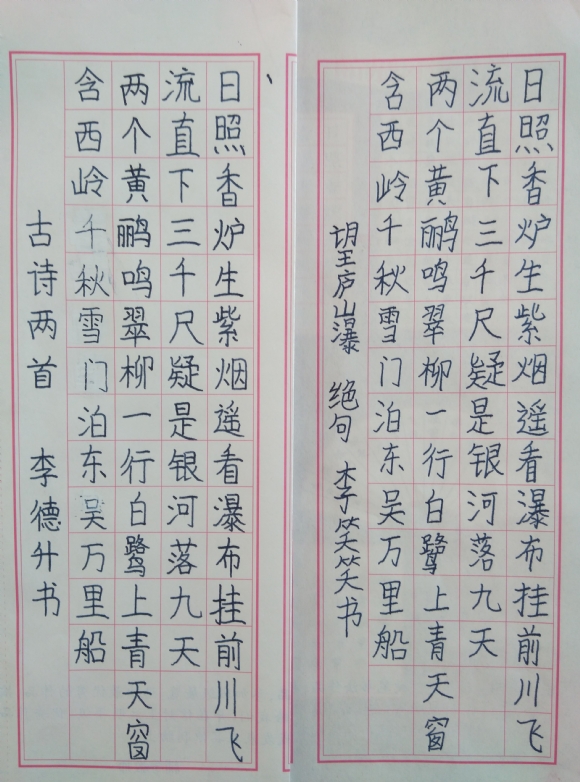 日照香炉生紫烟遥看瀑布挂前川飞
流直下三千尺疑是银河落九天
两个黄鹂鸣翠柳一行白鹭上青天窗
含西岭千秋雪门泊东吴万里船
古诗两首 李德升书
日照香炉生紫烟遥看瀑布挂前川飞
流直下三千尺疑是银河落九天
两个黄鹂鸣翠柳一行白鹭上青天窗
含西岭千秋雪门泊东吴万里船
望庐山瀑 绝句 李笑笑书